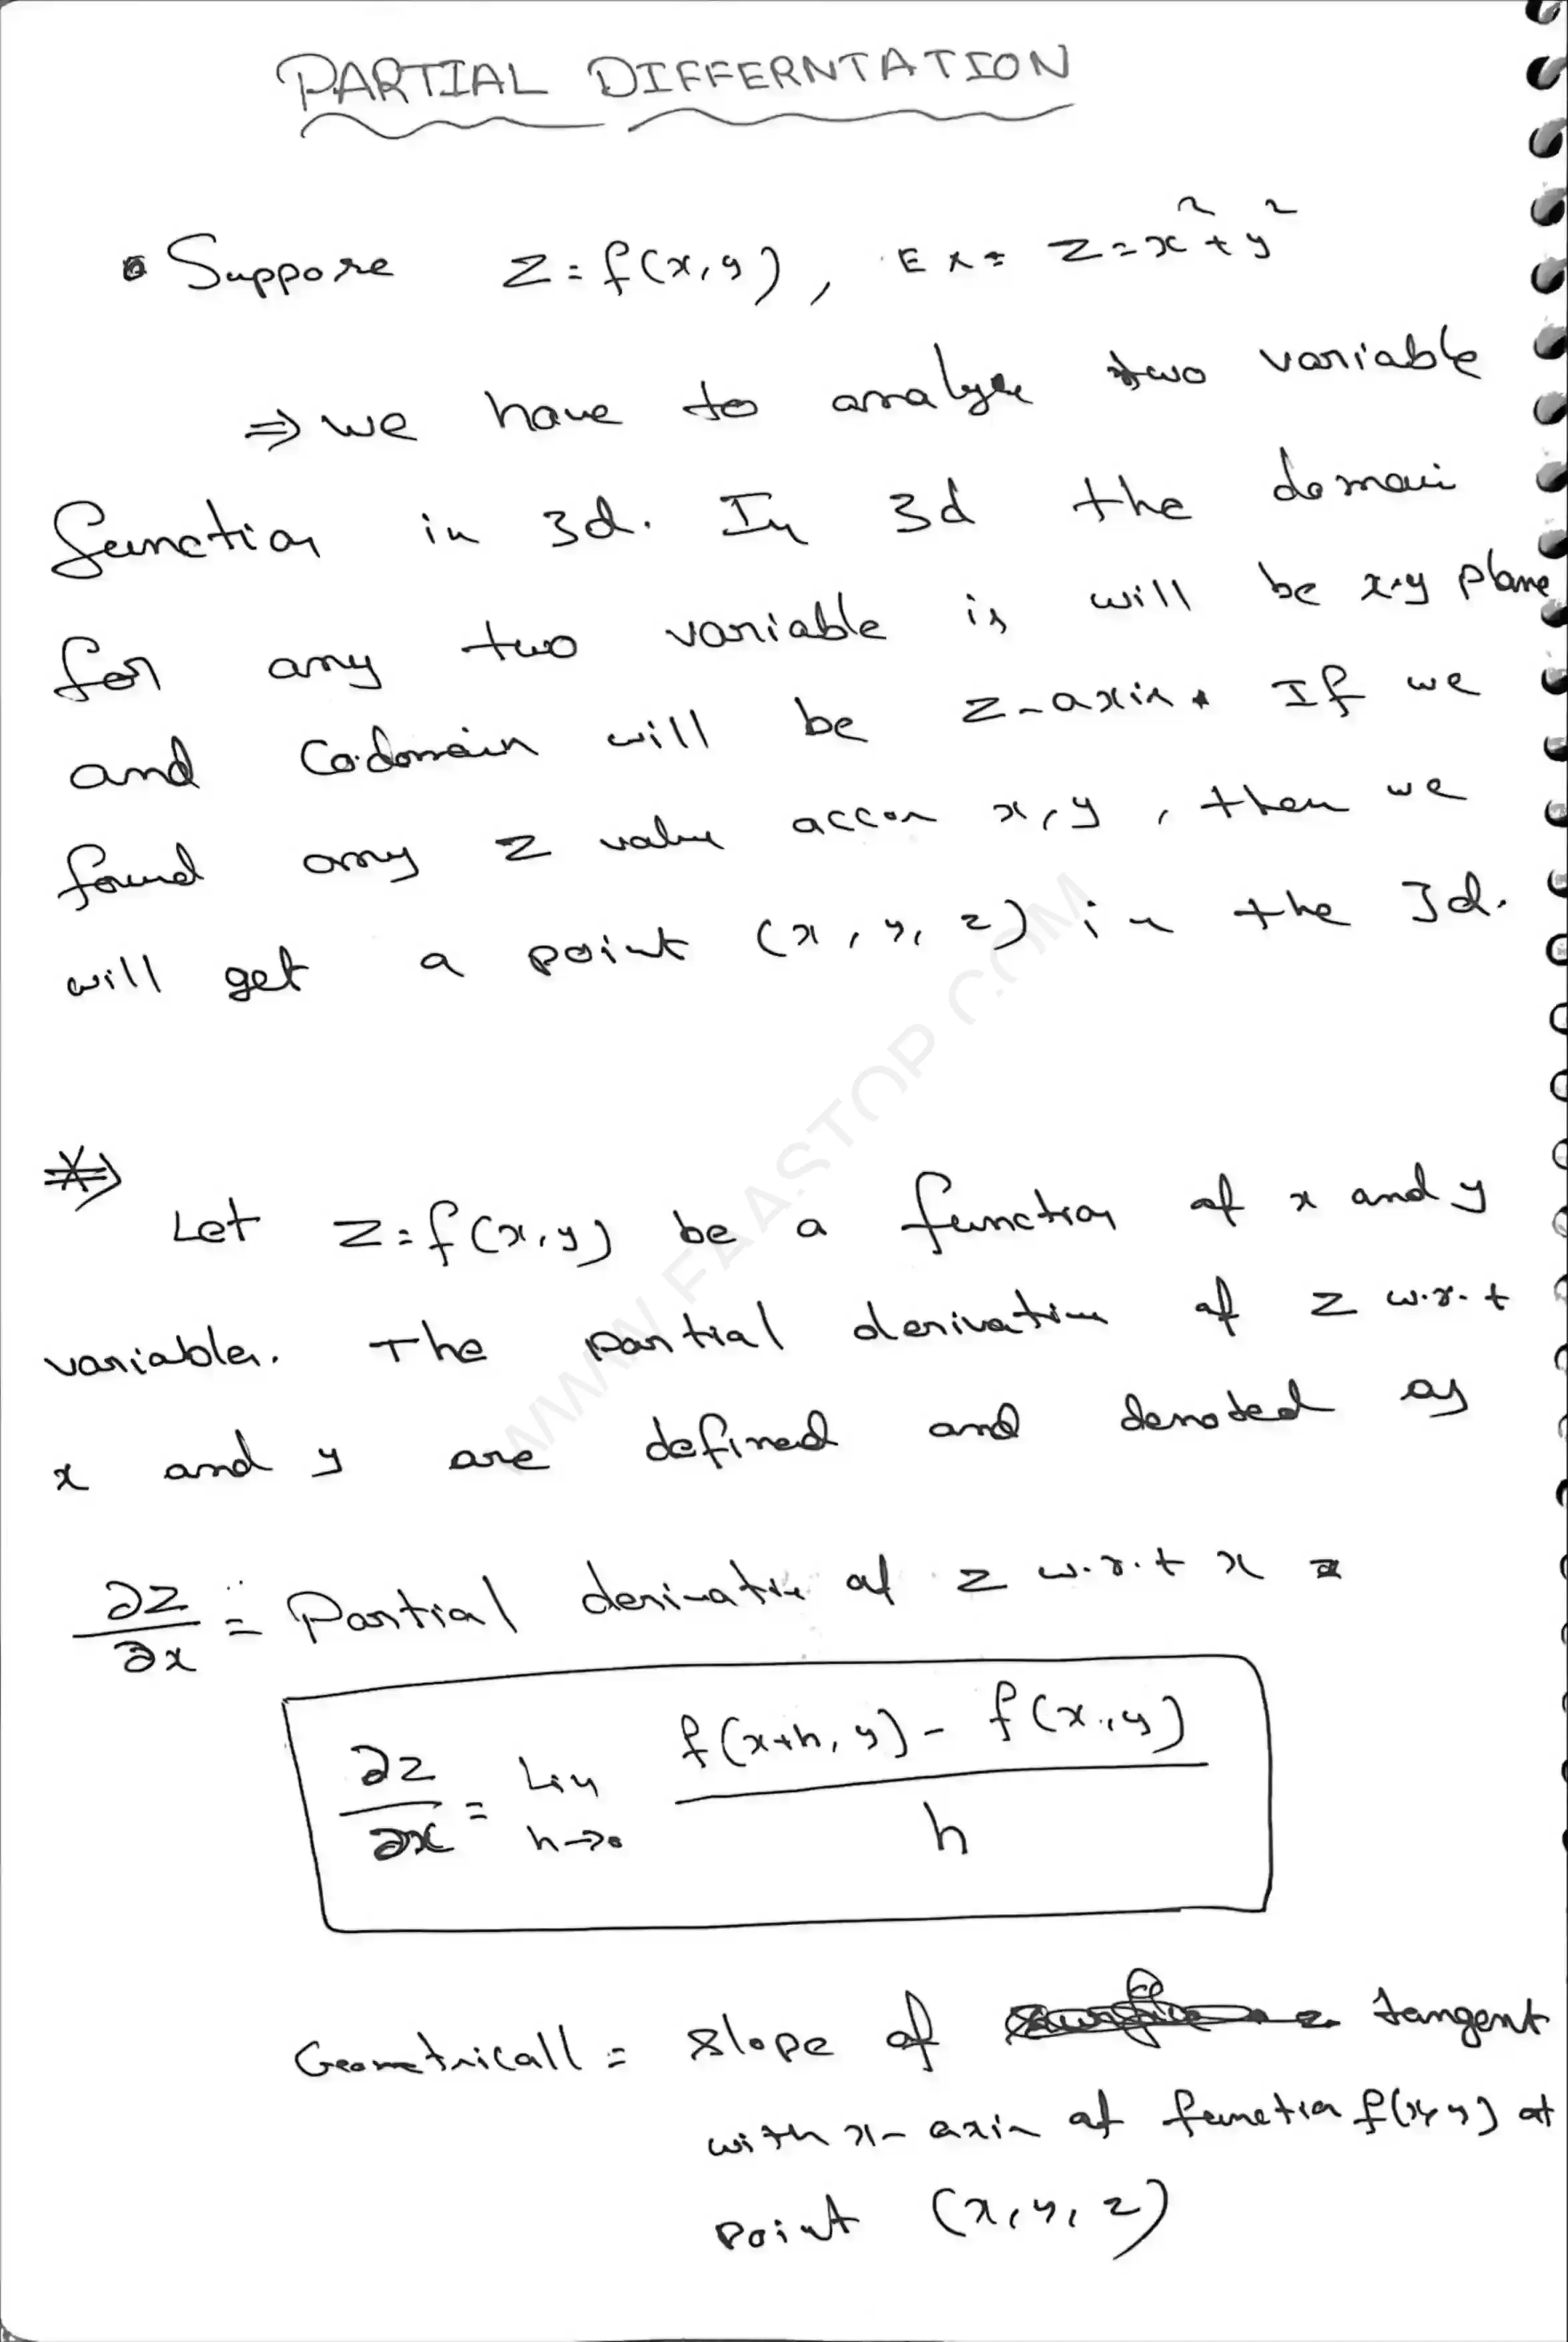 PARTIAL DIFFERNTATION
• Suppose z = f(x, y), Ex = z = x² + y²
⇒ we have to analyse two variable
function in 3d. In 3d the domai
for any two variable is will be x-y plane
and Co-domain will be z-axis. If we
found any z value accor x, y, then we
will get a point (x, y, z) in the 3d.
Let z = f(x, y) be a function of x and y
variables. The partial derivative of z w.r.t
x and y are defined and denoted as
∂z/∂x = Partial derivative of z w.r.t x =
∂z/∂x = Lim h→0 f(x+h, y) - f(x, y) / h
Geometricall = slope of tangent
with x-axis of function f(x, y) at
point (x, y, z)
WWW.FAASTOP.COM